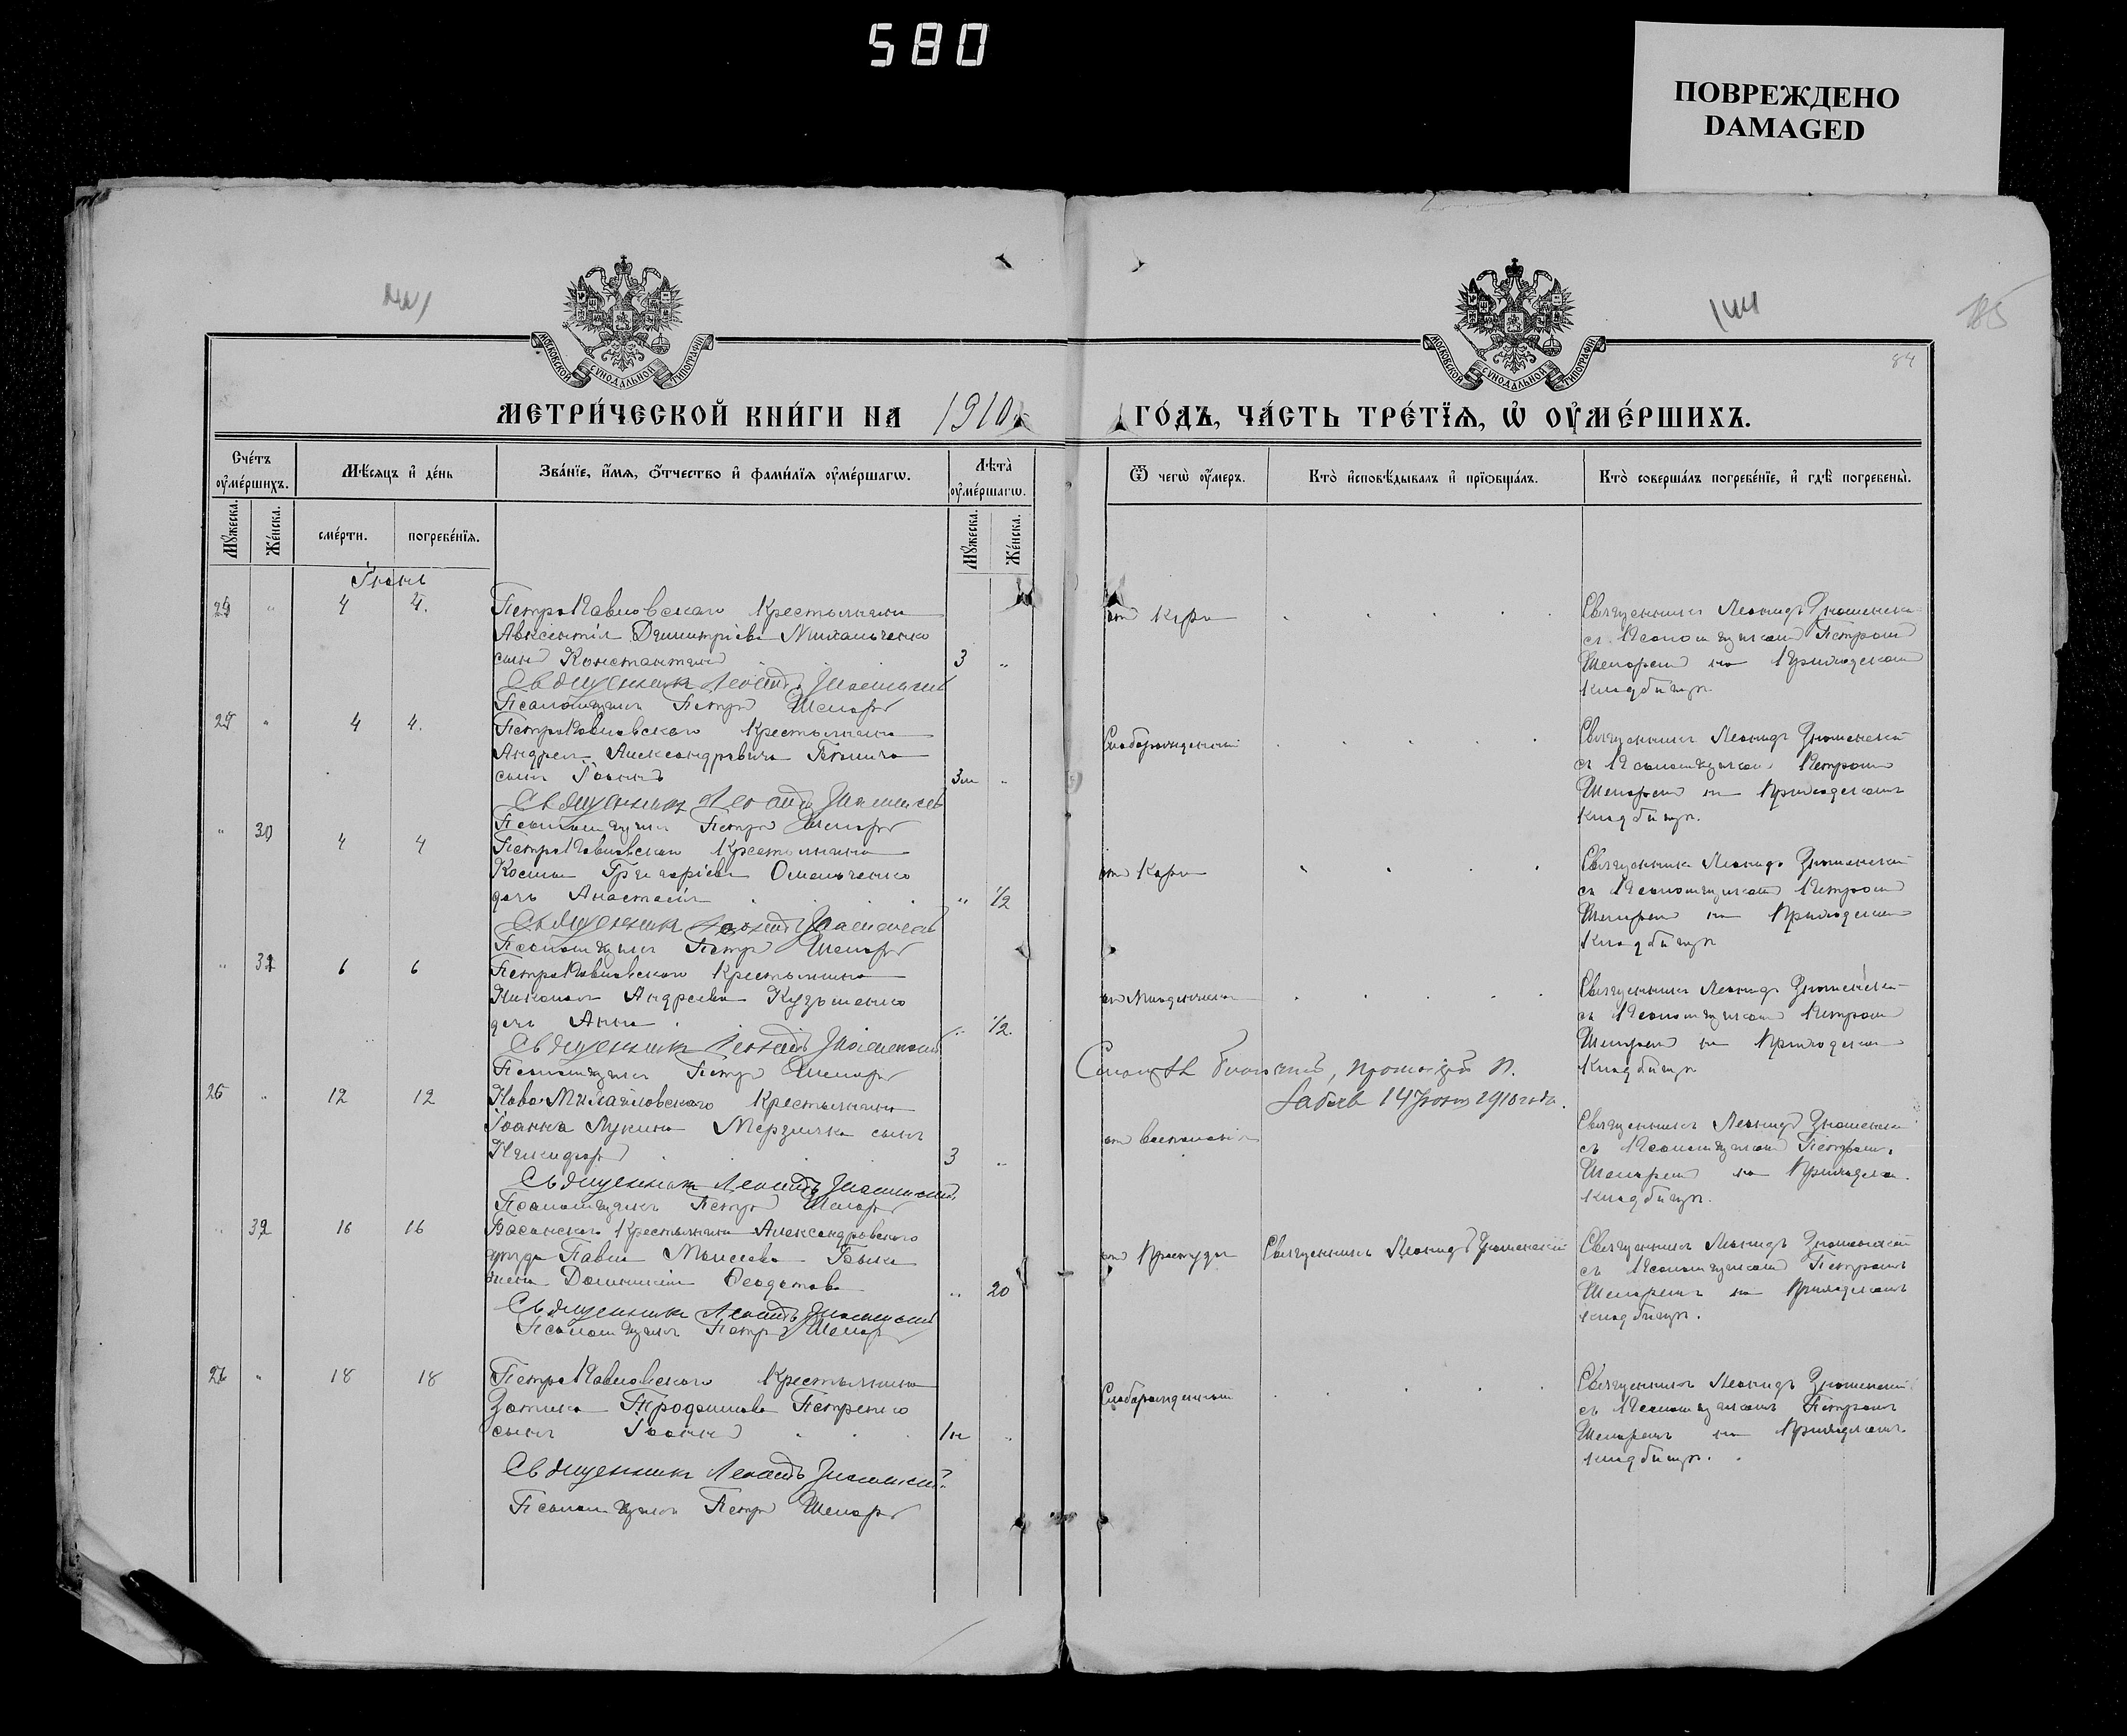 580
ПОВРЕЖДЕНО
DAMAGED
84
МОСКОВСКОЙ СѴНОДАЛЬНОЙ ТИПОГРАФІИ
МОСКОВСКОЙ СѴНОДАЛЬНОЙ ТИПОГРАФІИ
МЕТРИ́ЧЕСКОЙ КНИ́ГИ НА 1910
ГО́ДЪ, ЧА́СТЬ ТРЕ́ТЇѦ, Ѡ҆ ОУ҆МЕ́РШИХЪ.
Сче́тъ оу҆ме́ршихъ.
Мѣ́сѧцъ и҆ де́нь
Зва́нїе, и҆́мѧ, ѻ҆́тчество и҆ фами́лїѧ оу҆ме́ршагѡ.
Лѣта̀ оу҆ме́ршагѡ.
Ѿ чегѡ̀ оу҆́меръ.
Кто̀ и҆сповѣ́дывалъ и҆ прїѡбща́лъ.
Кто̀ соверша́лъ погребе́нїе, и҆ гдѣ̀ погребены̀.
Мꙋ́жеска. Же́нска.
сме́рти. погребе́нїѧ.
Мꙋ́жеска. Же́нска.
Іюнь
4 4. ПетроПавловскаго Крестьянина
Авксентія Димитріева Михальченко
сынъ Константинъ 3 "
Священникъ Леонидъ Знаменскій
Псаломщикъ Петръ Шепаръ
Священникъ Леонидъ Знаменскій
съ Псаломщикомъ Петромъ
Шепаремъ на Приходскомъ
кладбищѣ
" 4 4. ПетроПавловскаго Крестьянина
Андрея Александровича
сынъ Іоаннъ 3м "
Священникъ Леонидъ Знаменскій
Псаломщикъ Петръ Шепаръ
Слаборожденный
Священникъ Леонидъ Знаменскій
съ Псаломщикомъ Петромъ
Шепаремъ на Приходскомъ
кладбищѣ.
" 30 4 4 ПетроПавловскаго Крестьянина
Косьмы Григоріева Омельченко
дочь Анастасія " 1/2
Священникъ Леонидъ Знаменскій
Псаломщикъ Петръ Шепаръ
отъ Кори
Священникъ Леонидъ Знаменскій
съ Псаломщикомъ Петромъ
Шепаремъ на Приходскомъ
кладбищѣ
" 31 6 6 ПетроПавловскаго Крестьянина
Николая Андреева Кузьменко
дочь Анна " 1/2.
Священникъ Леонидъ Знаменскій
Псаломщикъ Петръ Шепаръ
Священникъ Леонидъ Знаменскій
съ Псаломщикомъ Петромъ
Шепаремъ на Приходскомъ
кладбищѣ
14 Іюня 1910 года.
25 " 12 12 Ново-Михайловскаго Крестьянина
Іоанна Лукина Мерзляка сынъ
Никифоръ 3 "
Священникъ Леонидъ Знаменскій.
Псаломщикъ Петръ Шепаръ
отъ воспаленія
Священникъ Леонидъ Знаменскій
съ Псаломщикомъ Петромъ
Шепаремъ на Приходском.
кладбищѣ.
" 32 16 16 Крестьянина Александровскаго
уѣзда Павла Моисеева Быка
жена Домникія Ѳеодотова " 20
Священникъ Леонидъ Знаменскій
Псаломщикъ Петръ Шепаръ
отъ Простуды
Священникъ Леонидъ Знаменскій
Священникъ Леонидъ Знаменскій
съ Псаломщикомъ Петромъ
Шепаремъ на Приходскомъ
кладбищѣ.
26 " 18 18 ПетроПавловскаго Крестьянина
Зотика Трофимова Петренко
сынъ Іоаннъ 1н "
Священникъ Леонидъ Знаменскій.
Псаломщикъ Петръ Шепаръ
Слаборожденный
Священникъ Леонидъ Знаменскій
съ Псаломщикомъ Петромъ
Шепаремъ на Приходскомъ
кладбищѣ.